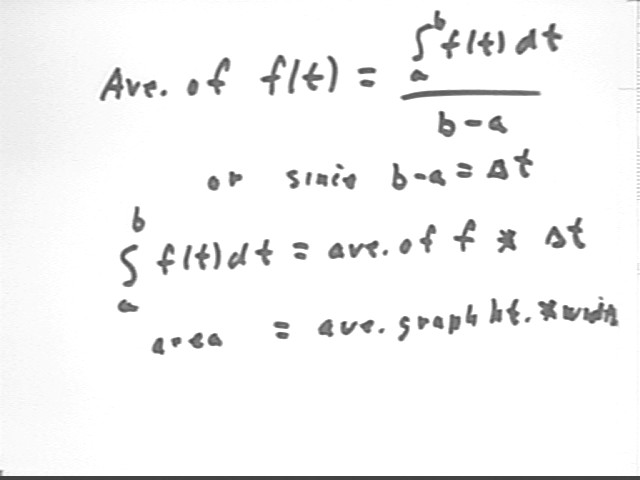 Ave. of f(t) = ∫_a^b f(t) dt / b-a
or sinic b-a = Δt
∫_a^b f(t) dt = ave. of f * Δt
area = ave. graph ht. *